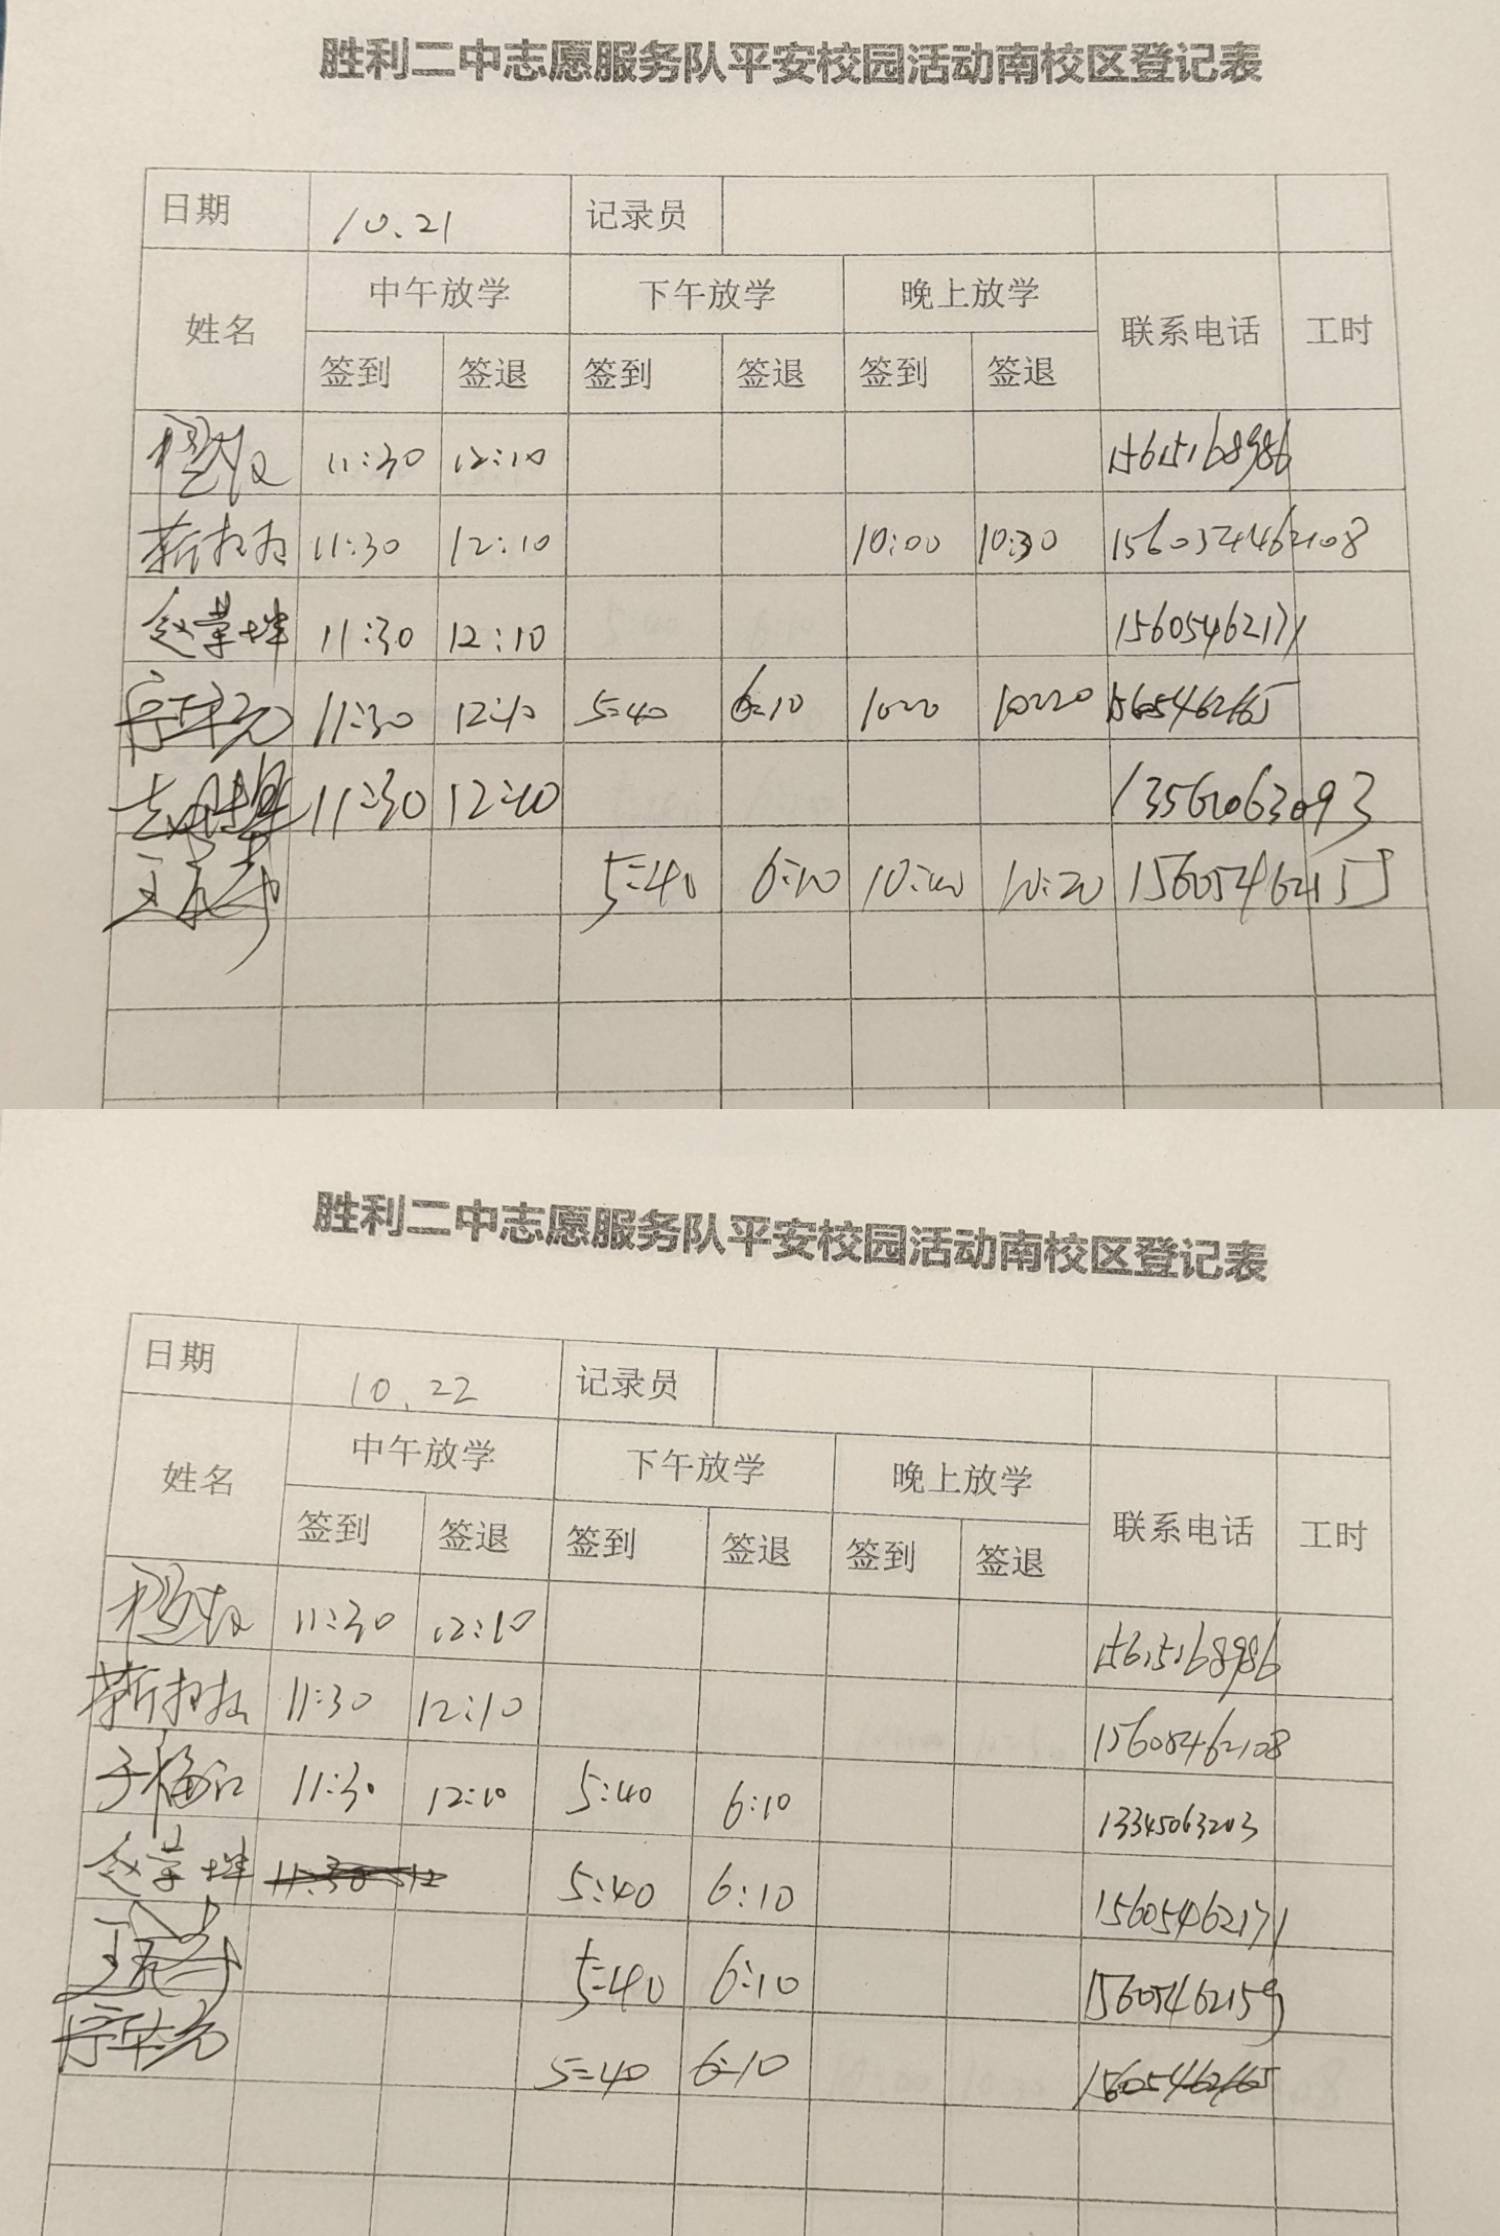 胜利二中志愿服务队平安校园活动南校区登记表
日期 10.21 记录员
中午放学 下午放学 晚上放学
姓名 联系电话 工时
签到 签退 签到 签退 签到 签退
11:30 12:10 15615168986
11:30 12:10 10:00 10:30
赵 11:30 12:10 15605462171
11:30 12:10 5:40 6:10 15605462165
11:30 12:10
王 5:40 6:10 10:00 10:20
胜利二中志愿服务队平安校园活动南校区登记表
日期 10.22 记录员
中午放学 下午放学 晚上放学
姓名 联系电话 工时
签到 签退 签到 签退 签到 签退
11:30 12:10 15615168986
11:30 12:10 15605462108
11:30 12:10 5:40 6:10 13345063203
赵 5:40 6:10 15605462171
王 5:40 6:10 15605462159
5:40 6:10 15605462165